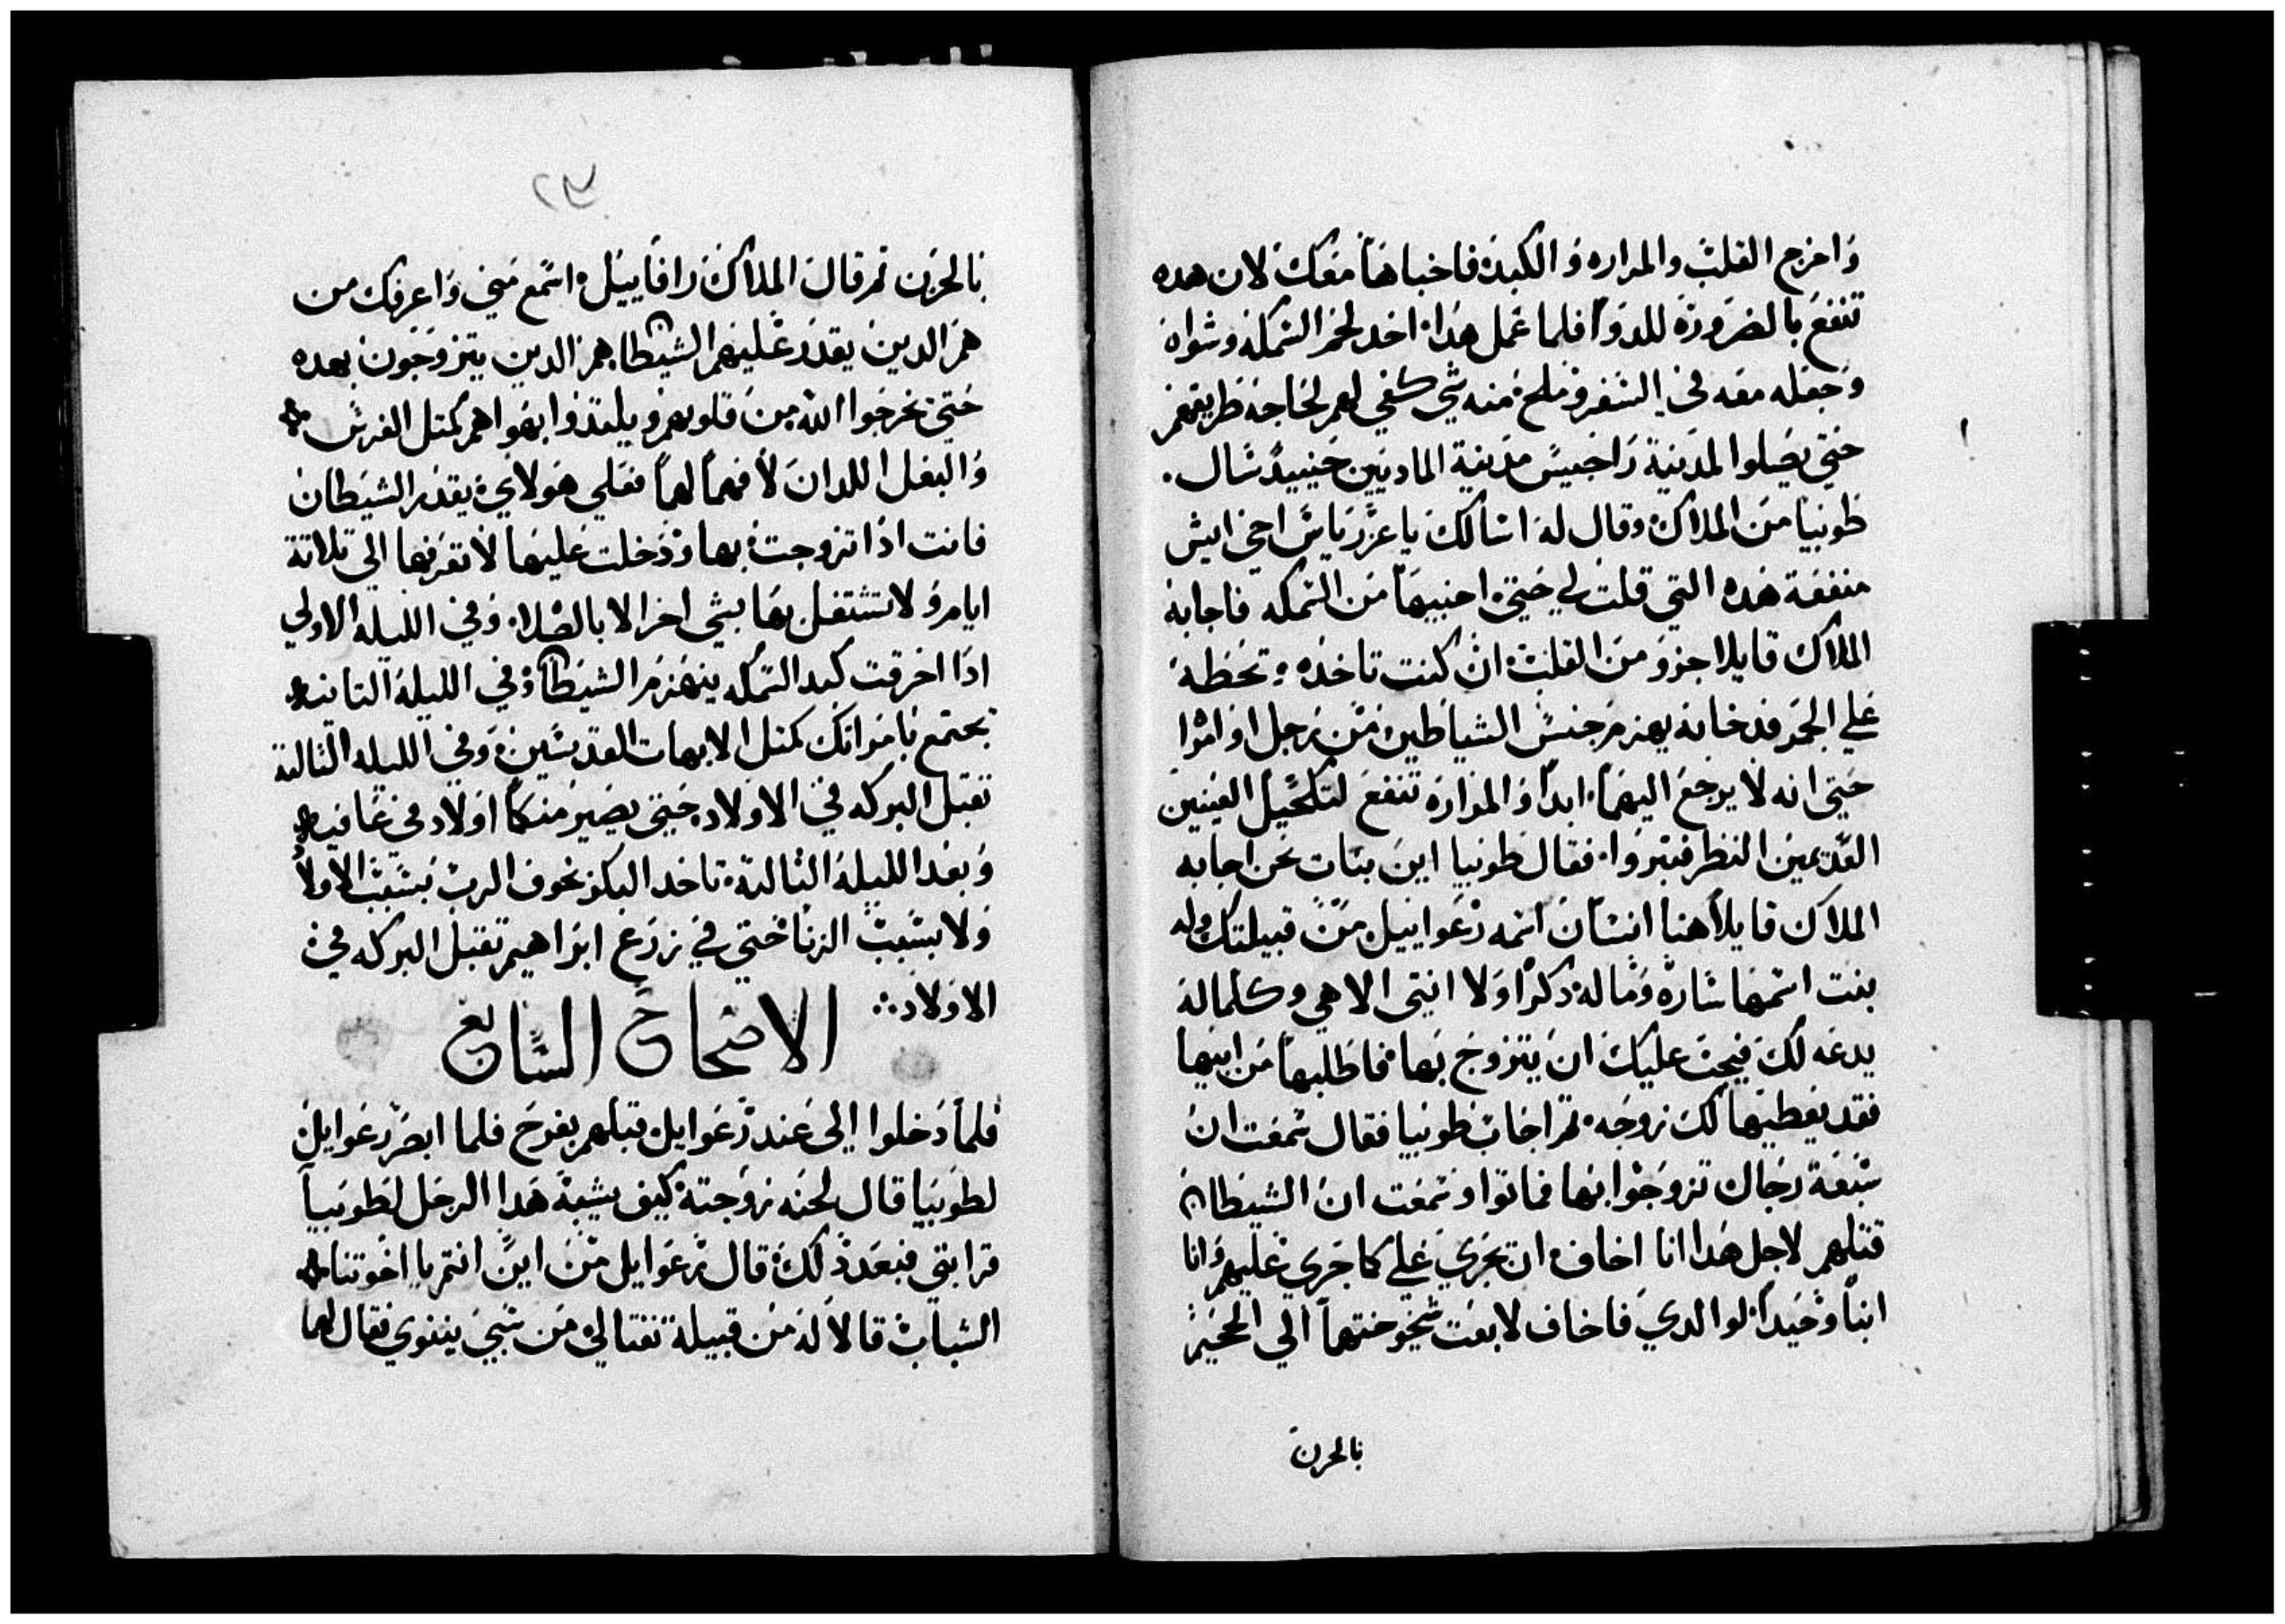 وَاخرج القلبْ والمراره وَالكبدَه فاخباهَا مَعَكَ لان هده
تنفعَ بالضرَورَة للدوَا فلما عَمل هَدا اخد لحمَ السَمكهَ وشواهَ
وَجعَله معَه في السَفر وَملحَ مَنه شي كفي لهمر لحَاجة طَريقهمَ
حَتي يصَلوا لمدَينة رَاجيسَ مدَينة المادَيين حَينيدَ سَال.
طَوبيا منَ الملاك وقال لهَ اسَالكَ يا عَزرَياسَ اخي ايش
منفعَة هَده التي قلت لي حَتي اخبيهَا مَن السَمكه فاجابهَ
الملاك قايلا جزوَ منَ القلبْ انَ كنت تاخدَه وتحَطهَ
عَلي الجمَر فدخانه يهزم جنسَ الشياطَين مَن رَجل اوَ امرَا
حَتي انه لا يرجعَ اليهمَا ابدَا وَالمرَارة تنفعَ لتكحَيل العَينين
العَدَيمين النظرَ فتبروَا فقال طَوبيا اينَ نبَات نحَن اجابه
الملاك قايلا هَنا انسَانَ اسَمه رعَواييل مَن قبيلتكَ وله
بنت اسَمهَا سَارهَ وَما لهَ دكرَا وَلا انتي الا هي وكلما لهَ
يدعَه لكَ فيجبَ عَليكَ انَ يتزوجَ بهَا فاطَلبهَا مَن ابيهَا
فقد يعَطيهَا لكَ زوجَه تمَ اجَابَ طَوبيا فقال سَمعَت انَ
سَبعَة رَجَال تزوجَوا بهَا فماتوا وسَمعَت انَ الشيطَان
قتلهمر لاجل هَدا انا اخاف ان تجرَي عَلي كما جرَي عَليهمر وَانا
ابنَا وَحَيدَا لوالدي فاخاف لا بعَت شيخوختهمَا الي الجحَيمَ
بالحزن
٧٢
بالحزَن تمر قالَ الملاكَ رَافاييلَ اسَمعَ مَني وَاعَرفك من
همَ الدينَ يقدَر عَليهمرَ الشيطَان همر الدين يتزوجَونَ بعده
حَتي يخرجَوا الله منَ قلوبهمر ويلتدَوا بهَواهمر كمتل الفرسَ
وَالبغَل اللدانَ لا فهمَا لهمَا فعَلي هَولايَ يقدَر الشيطَانَ
فانت ادَا تزوجتَ بها وَدَخلت عَليهَا لا تقرَبها الي تلاتة
ايامر وَلا تشتغَل بهَا بشي اخرَ الا بالصَلاه وَفي الليله الاولي
ادَا احرَقت كبد السَمكه ينهَزم الشيطَان وَفي الليلهَ التانيه
تجتمعَ بامرَاتكَ كمتل الابهات القديسَين وَفي الليله التالتة
تقبل البركه في الاولاد حَتي يصَير منكمَا اولاد في عَافيه
وَبعَد الليلهَ التالتهَ تاخد البكر بخوف الربْ بسَببْ الاولاد
وَلا بسَببْ الزنا حَتي في زرَعَ ابرَاهيمر تقبل البركه في
الاوَلاد
الاصحاحَ السَابع
فلمَا دَخلوا الي عَند رَعَوايل قبلهم بفرَحَ فلما ابصَر رَعَوايلَ
لطَوبيا قال لحنَه زوجَتهَ كيف يشبهَ هَدا الرجَل لطَوبيا
قرابتي فبعَد دَلكَ قال رَعَوايل مَن اينَ انتم يا اخَوتنا
الشبابْ قالا لهَ مَن قبيلة نفتالي مَن سَبي نينوي فقال لهما